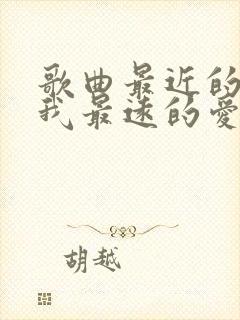 歌曲最近的
我最远的爱
胡越